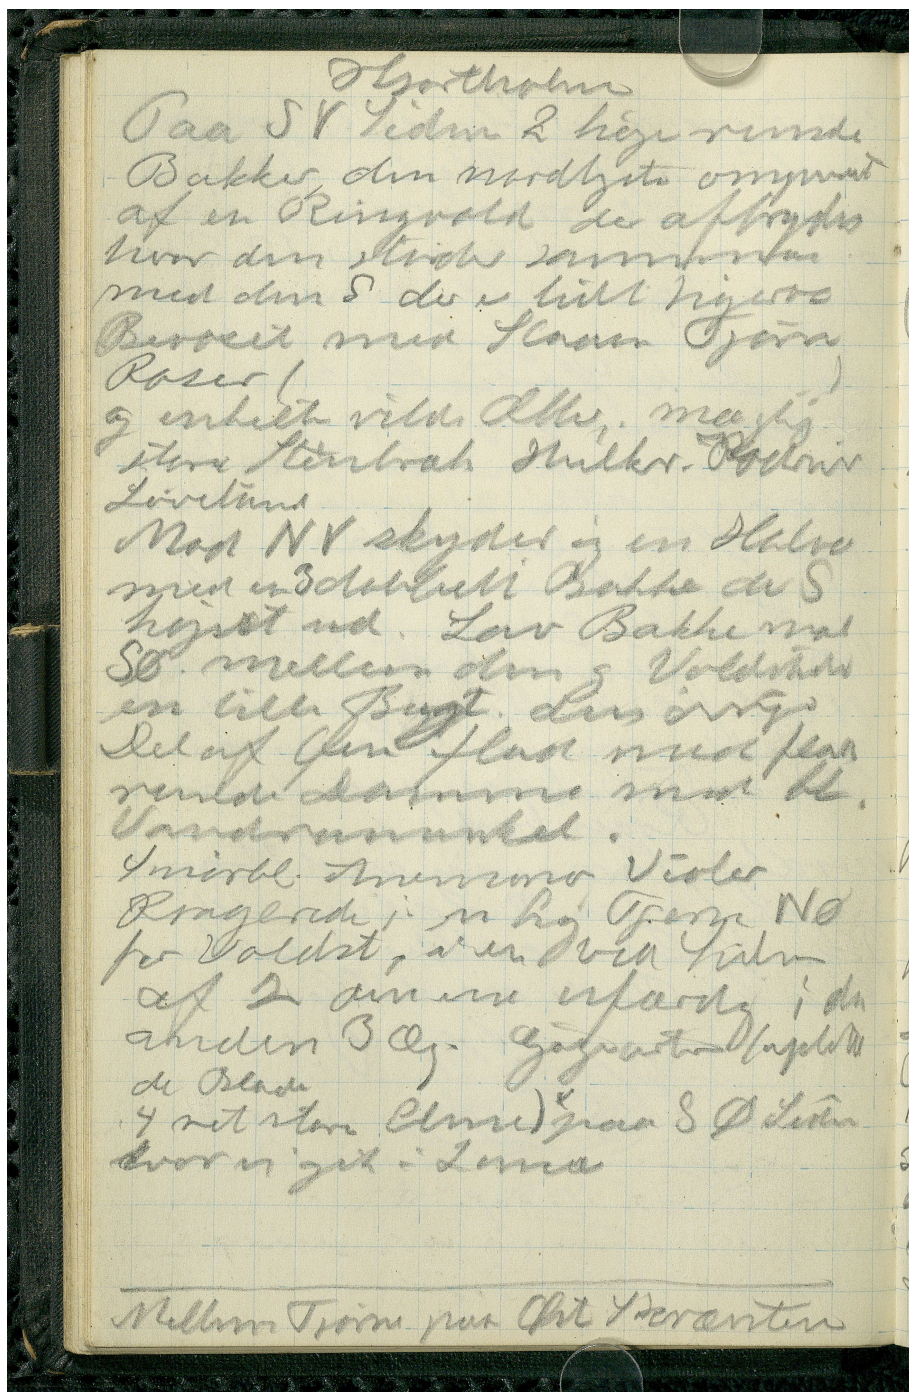 Hjortholm
Paa SV Siden 2 høje runde
Bakker, den nordligste omgivet
af en Ringvold der afbrydes
hvor den støder sammen
med den S der er lidt højere
Bevoxet med Slaaen Tjørn
Roser (
og enkelte vilde Æbler, mægtig
store Stenbræk Hulker. Rødrør
Løvetand
Mod NV skyder sig en Halvø
med en 3dobbelt Bakke der S
højest ud. Lav Bakke mod
SØ. mellem den og Voldstedet
en lille Bugt. Den øvrige
Del af Øen flad med flere
runde Damme med bl.
Vandranunkel.
Smørbl. Anemoner Violer
Kragerede i en høj Tjørn NØ
for Voldst, i en ved Siden
af 2 den ene ufærdig i den
anden 3 Æg. Gøgeurter
de Blade
4 ret store Elme) paa S Ø Siden
hvor vi gik i Land
Mellem Tjørne paa Øst Skrænten